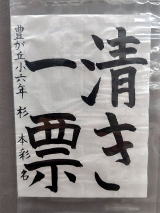 清き
一票
豊が丘小六年 杉本彩名